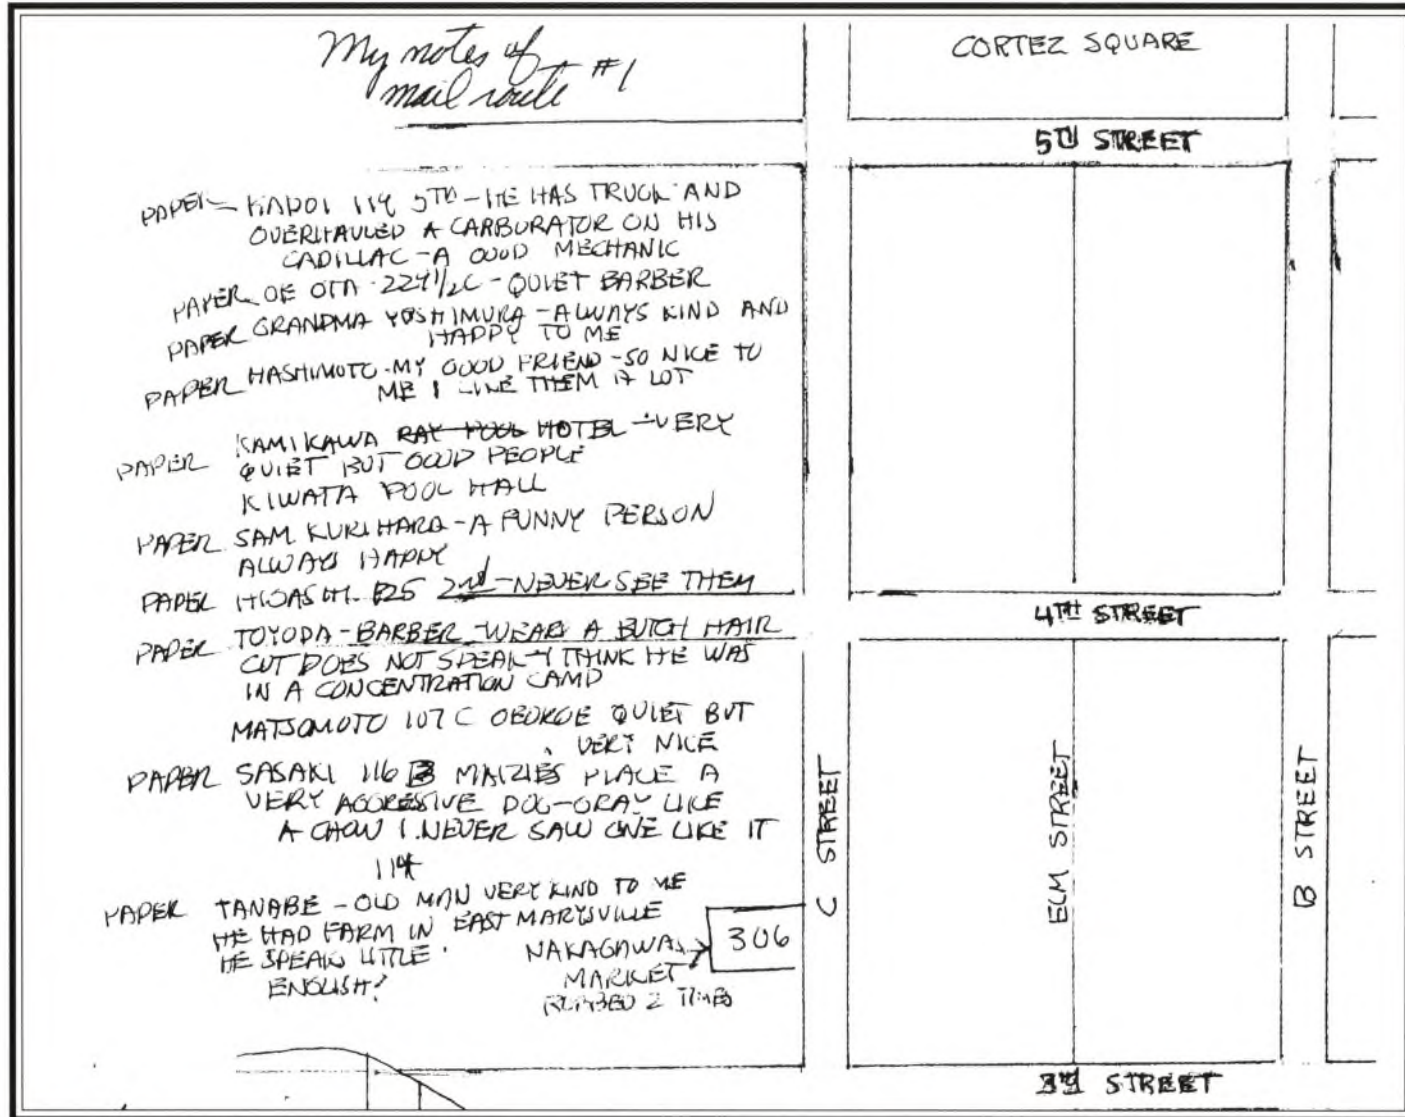 My notes of
mail route #1
CORTEZ SQUARE
5TH STREET
PAPER - KADOI 114 5TH - HE HAS TRUCK AND
OVERHAULED A CARBURATOR ON HIS
CADILLAC - A GOOD MECHANIC
PAPER OTA 229 1/2 C - QUIET BARBER
PAPER GRANDMA YOSHIMURA - ALWAYS KIND AND
HAPPY TO ME
PAPER HASHIMOTO - MY GOOD FRIEND - SO NICE TO
ME I LIKE THEM A LOT
KAMIKAWA RAY POOL HOTEL - VERY
PAPER QUIET BUT GOOD PEOPLE
KIWATA POOL HALL
PAPER SAM KURIHARA - A FUNNY PERSON
ALWAYS HAPPY
PAPER HIGASHI 125 2nd - NEVER SEE THEM
4TH STREET
PAPER TOYODA - BARBER - WEARS A BUTCH HAIR
CUT DOES NOT SPEAK - I THINK HE WAS
IN A CONCENTRATION CAMP
MATSOMOTO 107 C GEORGE QUIET BUT
VERY NICE
PAPER SASAKI 116 B MAIZIES PLACE A
VERY AGGRESSIVE DOG - GRAY LIKE
A CHOW I NEVER SAW ONE LIKE IT
114
PAPER TANABE - OLD MAN VERY KIND TO ME
HE HAD FARM IN EAST MARYSVILLE
HE SPEAK LITTLE
ENGLISH!
NAKAGAWA
MARKET
ROBBED 2 TIMES
306
C STREET
ELM STREET
B STREET
3RD STREET